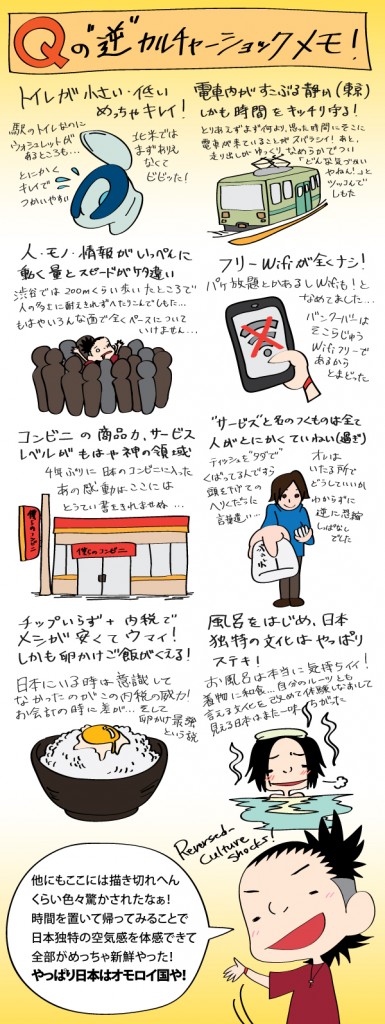 Qの“逆”カルチャーショックメモ!
トイレが小さい・低い
めっちゃキレイ!
駅のトイレなのに
ウォシュレットが
あるところも...
とにかく
キレイで
つかいやすい
北米では
まずありえ
なくて
ビビッた!
電車内がすこぶる静か(東京)
しかも時間をキッチリ守る!
とりあえずまず何より、思った時間にそこに
電車が来ていることがスバラシイ!あと、
走り出しがゆっくり、なめらかでつい
「どんな気づかい
やねん!」と
ツッコんで
しもた
人・モノ・情報がいっぺんに
動く量とスピードがケタ違い
渋谷では200mくらい歩いたところで
人の多さに耐えきれずへたりこんでしもた...
もはやいろんな面で全くペースについて
いけません...
フリーWifiが全くナシ!
パケ放題とかあるしWifiも!と
なめてました...
バンクーバーは
そこらじゅう
Wifiフリーで
あるから
とまどった
コンビニの商品力、サービス
レベルがもはや神の領域
4年ぶりに日本のコンビニに入った
あの感動はここには
とうてい書ききれませぬ...
僕らのコンビニ
僕らのコンビニ
“サービス”と名のつくものは全て
人がとにかくていねい(過ぎ)
ティッシュを“タダで”
くばってるんですら
頭を下げての
へりくだった
言葉遣い...
オレは
いたる所で
どうしていいか
わからずに
逆に恐縮
しっぱなし
でした
チップいらず+内税で
メシが安くてウマイ!
しかも卵かけご飯がくえる!
日本にいる時は意識して
なかったのがこの内税の威力!
お会計の時に差が...そして
卵かけ最強
という説
風呂をはじめ、日本
独特の文化はやっぱり
ステキ!
お風呂は本当に気持ちイイ!
着物に和食...自分のルーツとも
言える文化を改めて体験しなおして
見える日本はまた一味ちがった
Reversed-
Culture
shocks!
他にもここには描き切れへん
くらい色々驚かされたなぁ!
時間を置いて帰ってみることで
日本独特の空気感を体感できて
全部がめっちゃ新鮮やった!
やっぱり日本はオモロイ国や!